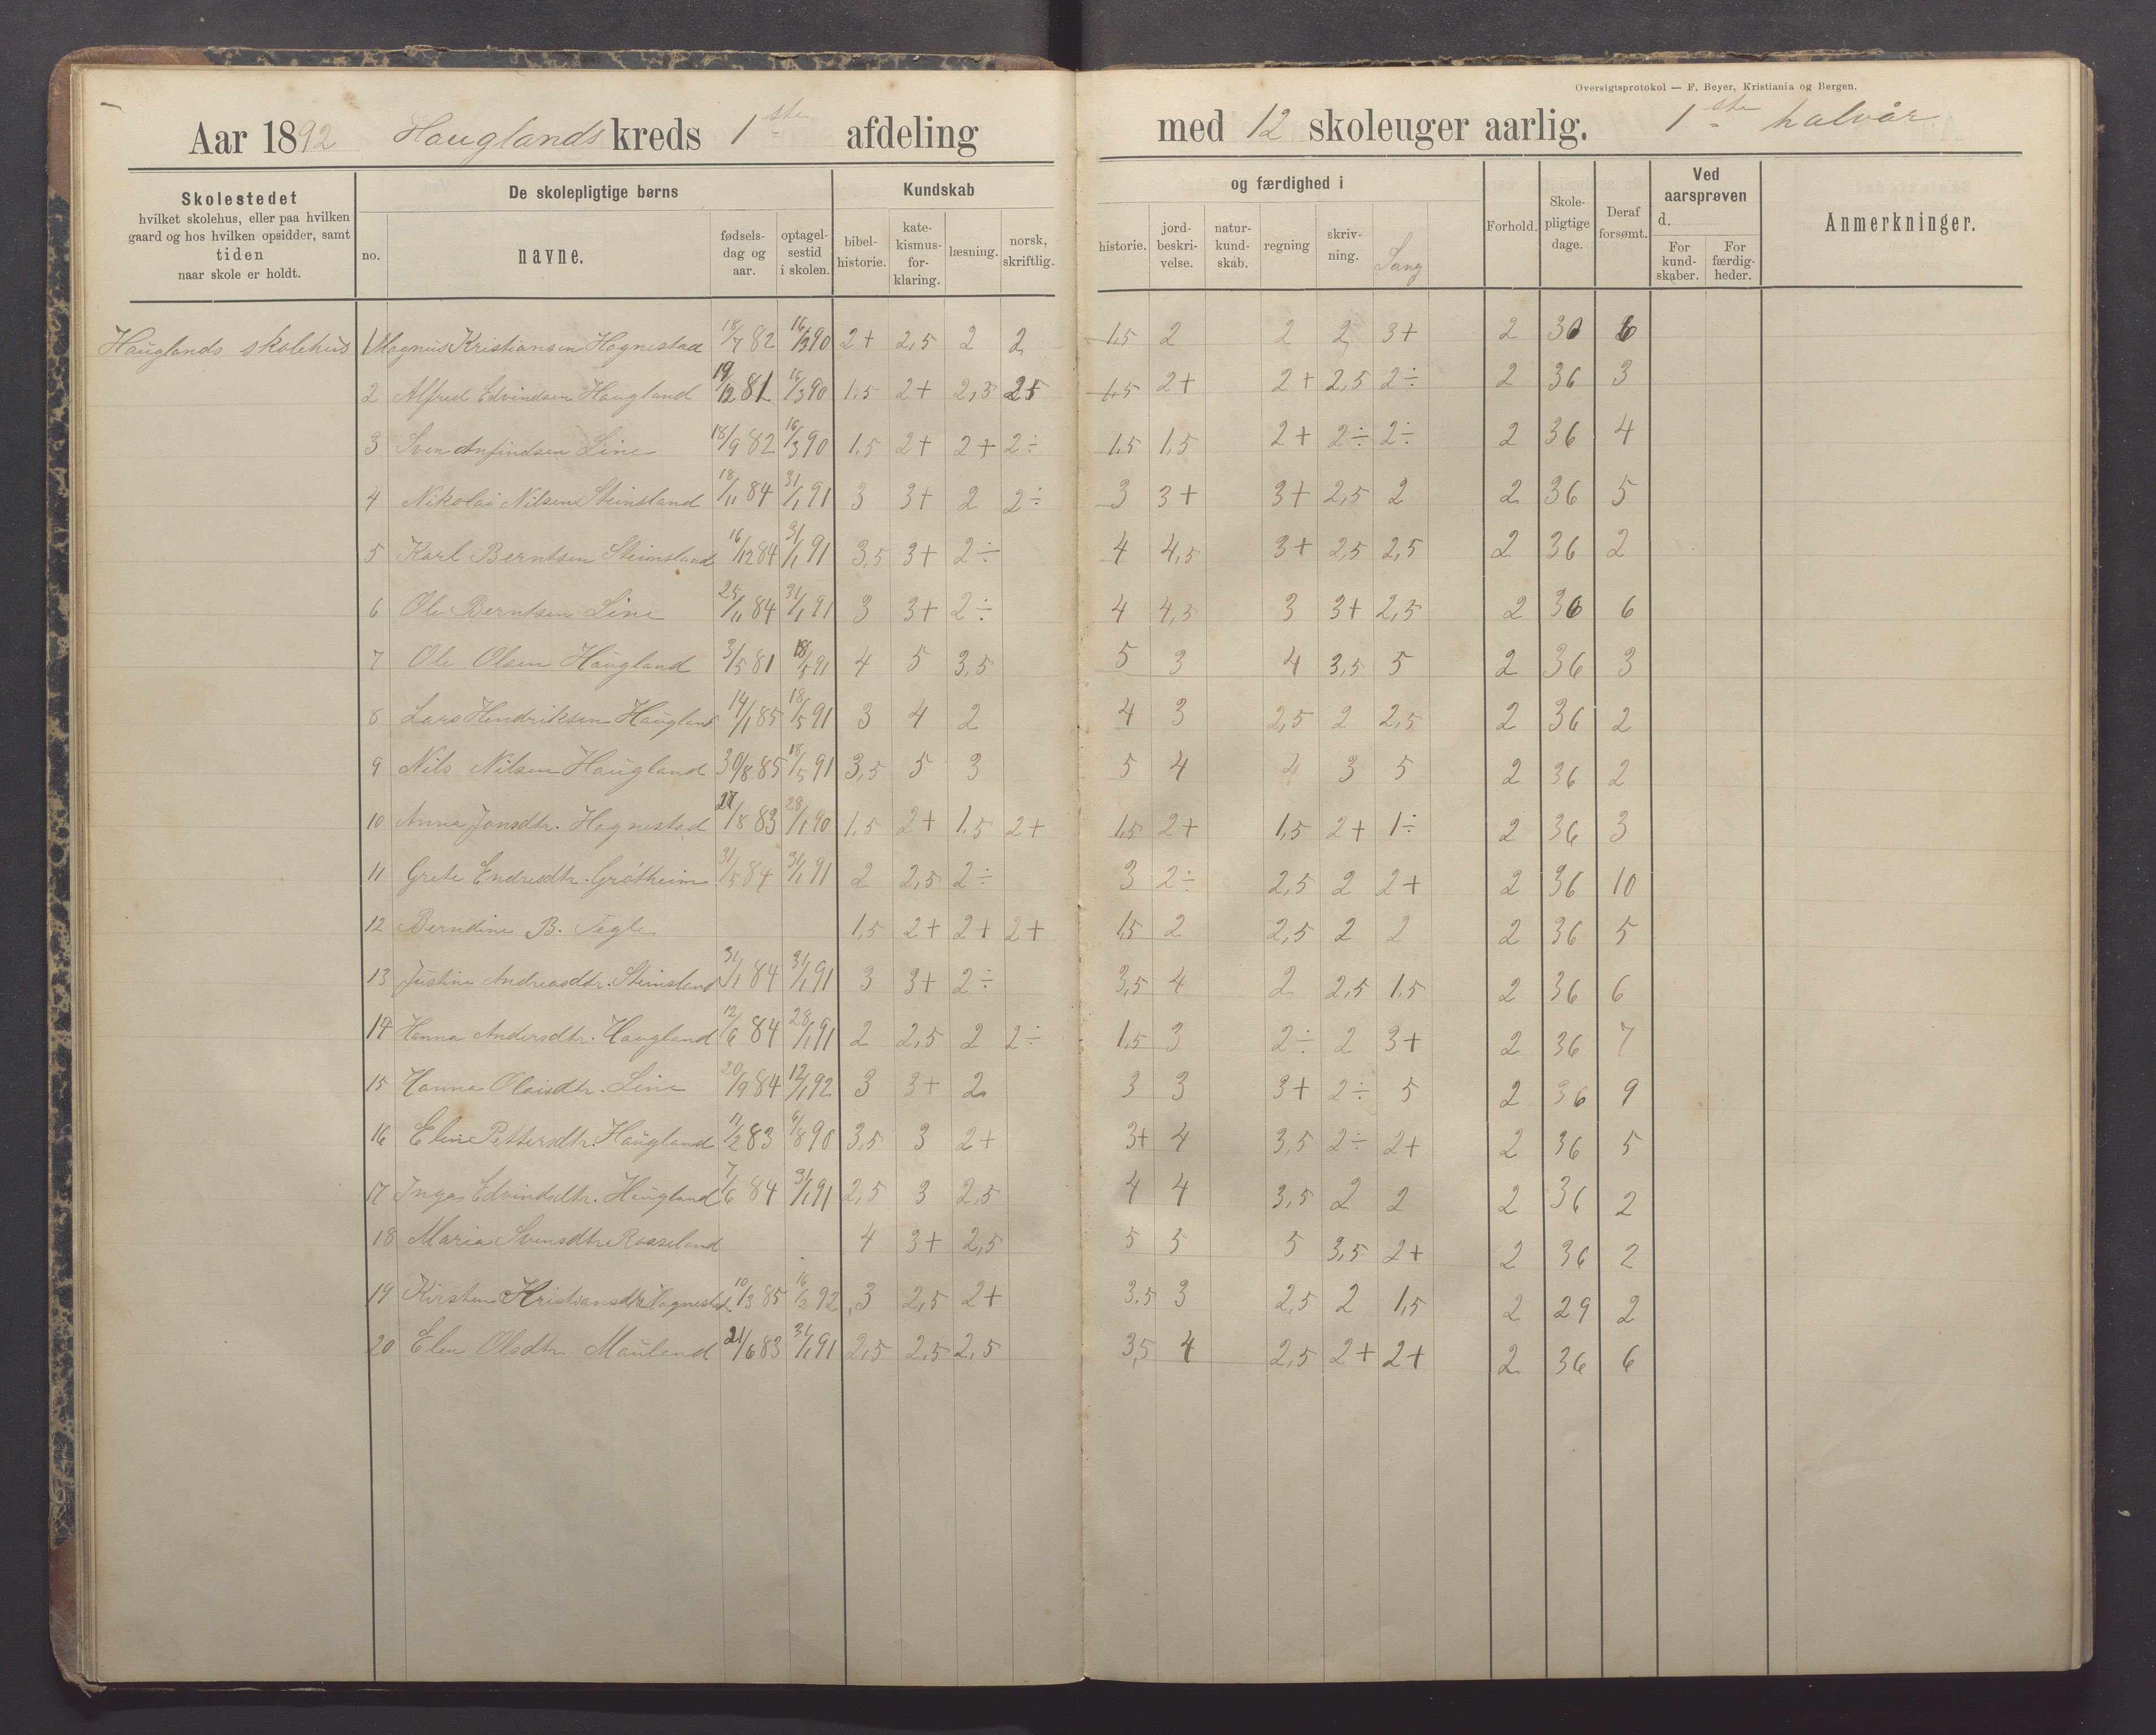 Oversigtsprotokol — F. Beyer, Kristiania og Bergen.
Aar 1892 Hauglands kreds 1ste afdeling med 12 skoleuger aarlig. 1ste halvår
Skolestedet hvilket skolehus, eller paa hvilken gaard og hos hvilken opsidder, samt tiden naar skole er holdt.
De skolepligtige børns
no. navne. fødsels-dag og aar. optagel-sestid i skolen.
Kundskab og færdighed i
bibel-historie. kate-kismus-for-klaring. læsning. norsk, skriftlig. historie. jord-beskri-velse. natur-kund-skab. regning skriv-ning. Sang
Forhold. Skole-pligtige dage. Deraf forsømt.
Ved aarsprøven d. For kund-skaber. For færdig-heder.
Anmerkninger.
Hauglands skolehus 1 Magnus Kristiansen Hognestad 18/7 82 16/3 90 2+ 2,5 2 2 1,5 2 2 2 3+ 2 36 6
2 Alfred Edvindsen Haugland 19/12 81 16/3 90 1,5 2+ 2,5 25 1,5 2+ 2+ 2,5 2÷ 2 36 3
3 Sven Anfindsen Line 18/9 82 16/3 90 1,5 2+ 2+ 2÷ 1,5 1,5 2+ 2÷ 2÷ 2 36 4
4 Nikolai Nilsen Steinsland 18/11 84 31/1 91 3 3+ 2 2÷ 3 3+ 3+ 2,5 2 2 36 5
5 Karl Berntsen Steinsland 16/12 84 31/1 91 3,5 3+ 2÷ 4 4,5 3+ 2,5 2,5 2 36 2
6 Ole Berntsen Line 25/11 84 31/1 91 3 3+ 2÷ 4 4,5 3 3+ 2,5 2 36 6
7 Ole Olsen Haugland 3/5 81 18/5 91 4 5 3,5 5 3 4 3,5 5 2 36 3
8 Lars Hendriksen Haugland 14/1 85 18/5 91 3 4 2 4 3 2,5 2 2,5 2 36 2
9 Nils Nilsen Haugland 30/8 85 18/5 91 3,5 5 3 5 4 4 3 5 2 36 2
10 Anna Jonsdtr. Hognestad 27/8 83 28/1 90 1,5 2+ 1,5 2+ 1,5 2+ 1,5 2+ 1÷ 2 36 3
11 Grete Endresdtr. Grötheim 31/5 84 31/1 91 2 2,5 2÷ 3 2÷ 2,5 2 2+ 2 36 10
12 Berndine B. Tegle 1,5 2+ 2+ 2+ 1,5 2 2,5 2 2 2 36 5
13 Justine Andreasdtr. Steinsland 31/1 84 31/1 91 3 3+ 2÷ 3,5 4 2 2,5 1,5 2 36 6
14 Hanna Andersdtr. Haugland 12/6 84 28/1 91 2 2,5 2 2÷ 1,5 3 2÷ 2 3+ 2 36 7
15 Hanna Olaisdtr. Line 20/9 84 12/1 92 3 3+ 2 3 3 3+ 2÷ 5 2 36 9
16 Eline Pettersdtr. Haugland 11/2 83 6/8 90 3,5 3 2+ 3+ 4 3,5 2÷ 2+ 2 36 5
17 Inga Edvindsdtr. Haugland 7/6 84 31/1 91 2,5 3 2,5 4 4 3,5 2 2 2 36 2
18 Maria Svensdtr. Rosseland 4 3+ 2,5 5 5 5 3,5 2+ 2 36 2
19 Kirsten Kristiansdtr. Hognestad 10/3 85 16/2 92 3 2,5 2+ 3,5 3 2,5 2 1,5 2 29 2
20 Elen Olsdtr. Mauland 21/6 83 31/1 91 2,5 2,5 2,5 3,5 4 2,5 2+ 2+ 2 36 6